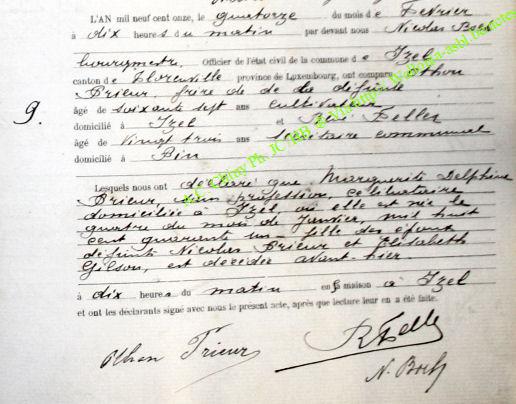 L'AN mil neuf cent onze, le quatorze du mois de Février
à dix heures du matin par devant nous Nicolas Boch
bourgmestre, Officier de l'état civil de la commune de Izel
canton de Florenville province de Luxembourg, ont comparu Othon
Prieur, frère de la défunte
âgé de soixante sept ans cultivateur
domicilié à Izel et René Felles
âgé de vingt trois ans secrétaire communal
domicilié à Pin
9.
Lesquels nous ont déclaré que Marguerite Delphine
Prieur, sans profession, célibataire
domiciliée à Izel, où elle est née le
quatre du mois de Janvier, mil huit
cent quarante un fille des époux
défunts Nicolas Prieur et Elisabeth
Gilson, est décédée avant-hier
à dix heures du matin en sa maison à Izel
et ont les déclarants signé avec nous le présent acte, après que lecture leur en a été faite.
Othon Prieur
R Felle
N. Boch